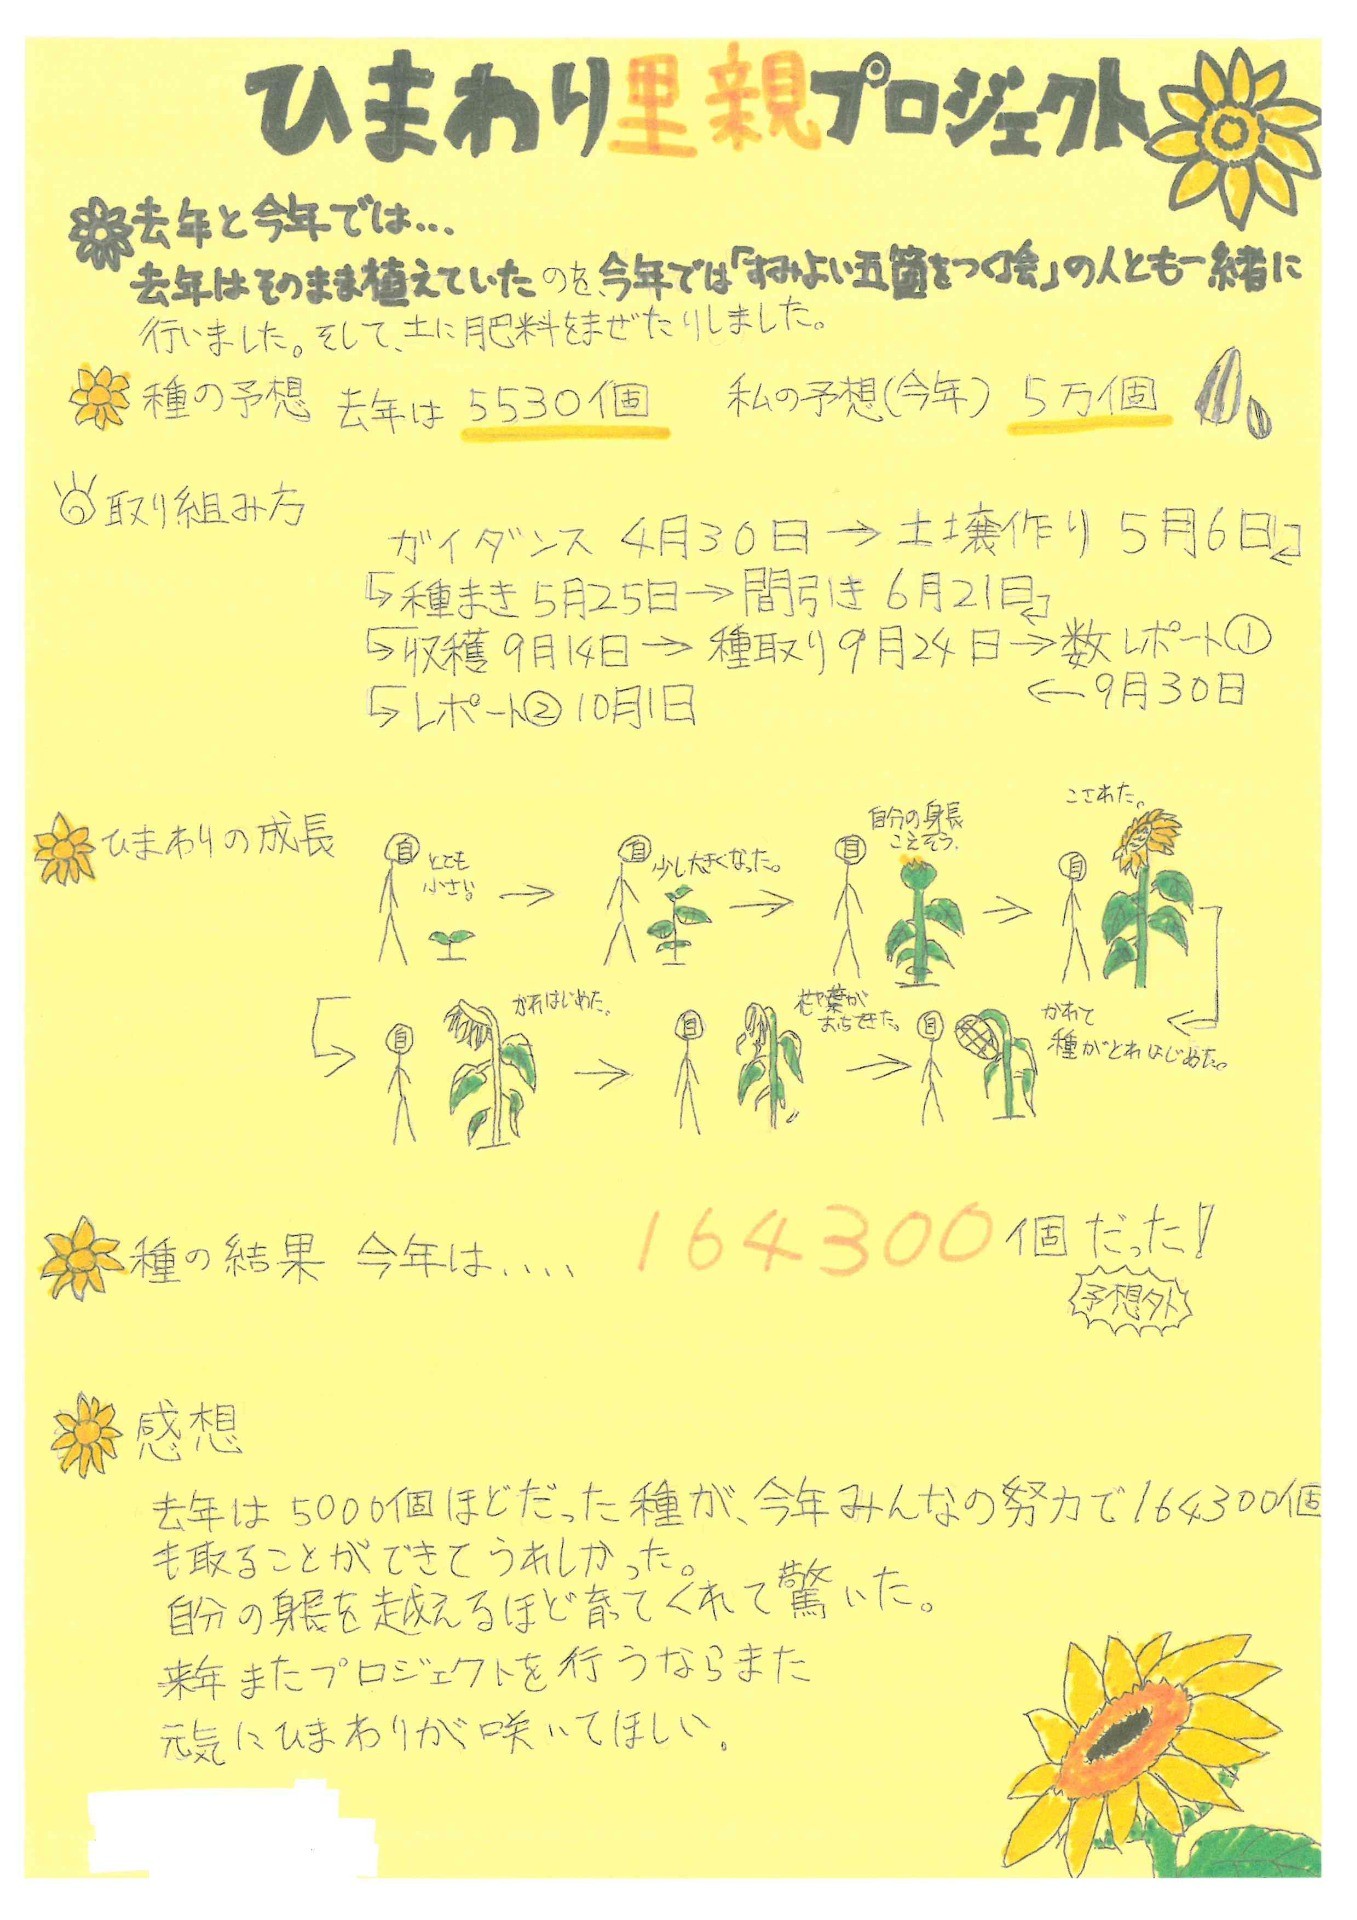 ひまわり里親プロジェクト
去年と今年では…
去年はそのまま植えていたのを、今年では「すみよい五箇をつくる会」の人とも一緒に
行いました。そして、土に肥料をまぜたりしました。
種の予想 去年は 5530個 私の予想(今年) 5万個
取り組み方
ガイダンス 4月30日→土壌作り 5月6日
種まき 5月25日→間引き 6月21日
収穫 9月14日→種取り 9月24日→数レポート①
←9月30日
レポート② 10月1日
ひまわりの成長
自 とても
小さい。
自 少し大きくなった。
自 自分の身長
こえそう。
自 こされた。
自 かれはじめた。
自 花や葉が
おちてきた。
自 かれて
種がとれはじめた。
種の結果 今年は.... 164300個だった!
予想外
感想
去年は5000個ほどだった種が、今年みんなの努力で164300個
も取ることができてうれしかった。
自分の身長を越えるほど育ってくれて驚いた。
来年またプロジェクトを行うならまた
元気にひまわりが咲いてほしい。